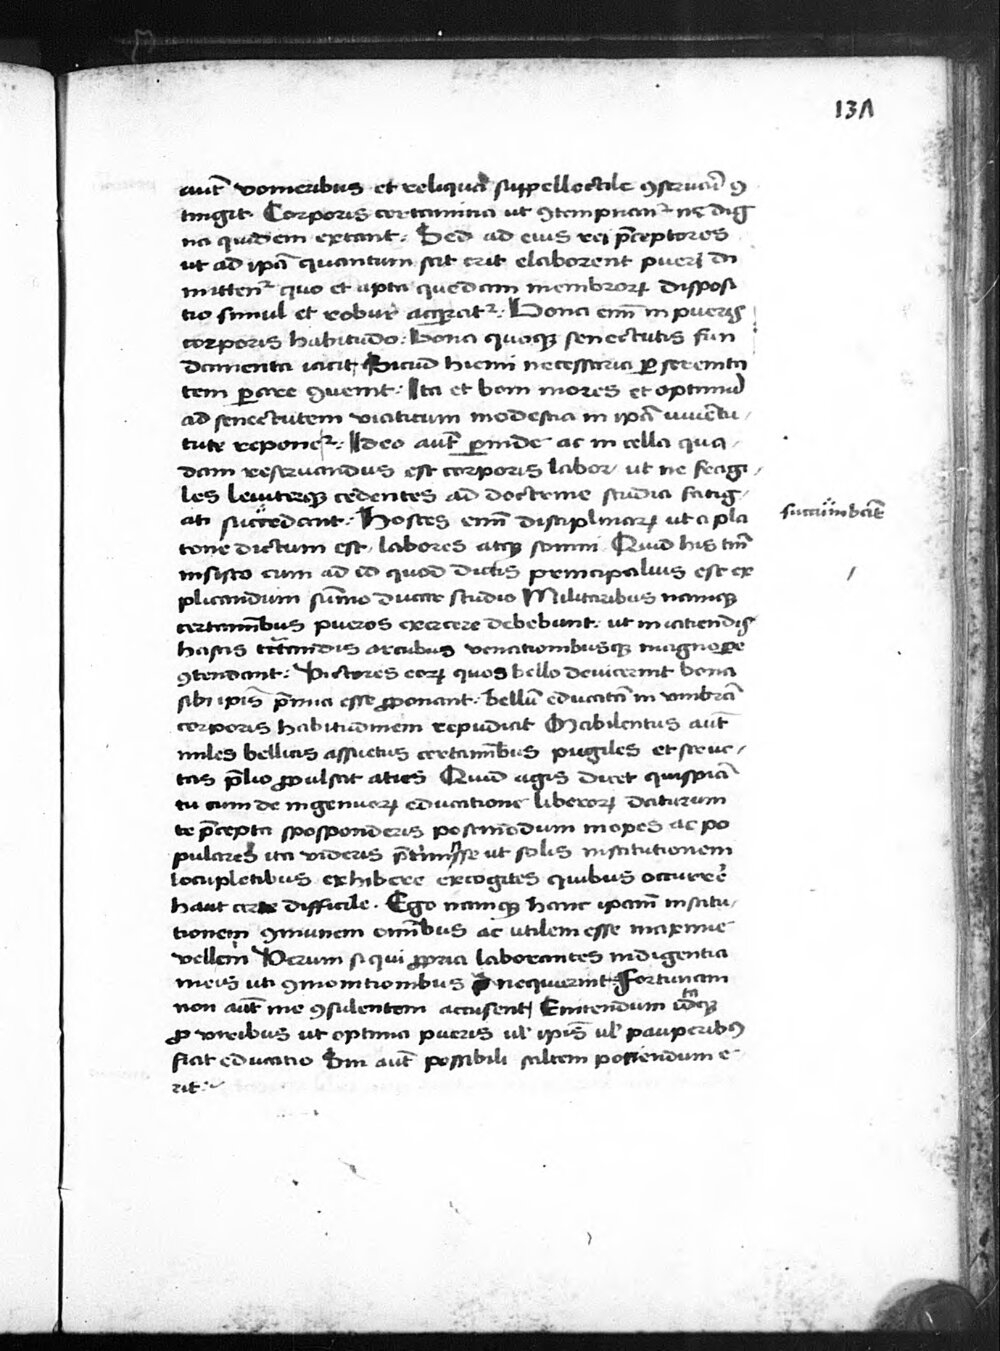 131
aut̄ vomeribus et reliqua suppellectile ꝯseruari ꝯ
tingit. Corporis certamina ut ꝯtempnant᷑ ne dig
na quidem extant. Sed ad eius rei p̄ceptores
ut ad ip̄a quantum sat erit elaborent pueri di
mitten᷑ quo et apta quedam membroꝝ disposi
tio simul et robur acqrat᷑. Bona eni᷑ in pueris
corporis habitudo. bona quoqꝫ senectutis fun
damenta iacit. Sicud hiemi necessaria ꝑ serenita
tem ꝑare ꝯuenit. Ita et boni mores et optimū
ad senectutem viaticum modestia in ip̄a iuuentu
tute repone᷑. Ideo aut̄ ꝑinde ac in cella qua
dam reseruandus est corporis labor ut ne fragi
les leuiterqꝫ cedentes ad doctrine studia fatig
ati succedant. Hostes eni᷑ disciplinaꝝ ut a pla
succumbant
tone dictum est, labores atqꝫ somni. Quid his tn̄
insisto cum ad id quod dictis principalius est ex
plicandum sūmo ducar studio Militaribus namqꝫ
certaminibus pueros exercere debebunt. ut in iatiendis
hastis arcubus venationibusqꝫ magnoꝑe
ꝯtendant. Victores eoꝝ quos bello deuicerint bona
sibi ipis p̄mia esse ꝓponant. bellū educatā in vmbra
corporis habitudinem repudiat Mabilentus aut̄
miles bellicis assuetus certaminibus pugiles et structas
p̄lio ꝓpulsat aties Quid agis dicet quispiā
tu cum de ingenuoꝝ educatione liberoꝝ daturum
te p̄cepta spoponderis postmodum inopes ac po
pulares ita videris ut solis institutionem
locupletibus exhibere excogites quibus occurrere
haut certe difficile. Ego namqꝫ hanc ipam institu
tionem ꝯmunem omnibus ac utilem esse maxime
vellem Verum si qui ꝓpria laborantes indigentia
meis uti ꝯmonitionibus nequiuerint Fortunam
non aut̄ me ꝯsulentem accusent, Enitendum itaqꝫ
ꝓ viribus ut optima pueris ul ipis ul pauperibus
fiat educatio Sin aut̄ possibili saltem potiendum e
rit.